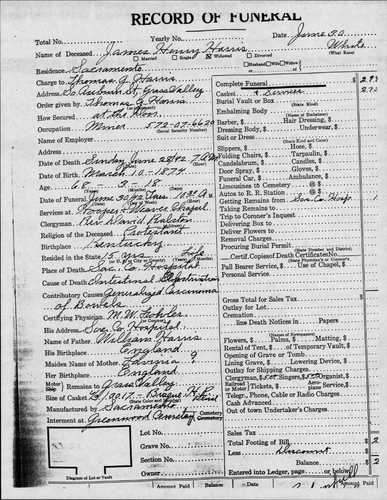 RECORD OF FUNERAL
Total No. Yearly No. Date June 30
Name of Deceased James Henry Harris White
Married Single Widowed Divorced Husband Wife of (What Race)
Residence Sacramento
Charge to Thomas G. Harris
Address So. Auburn St. Grass Valley
Order given by Thomas G. Harris
How Secured
Occupation Miner 572-07-6620
(Social Security Number)
Name of Employer
Address
Date of Death Sunday June 28/42 7 A.M.
Date of Birth March 10-1874
Age 68 - 3 - 18
(Years) (Months) (Days)
Date of Funeral June 30/42
Services at Hooper & Weaver Chapel
Clergyman Rev. David Ralston
Religion of the Deceased Protestant
Birthplace Kentucky
Resided in the State 15 yrs. Life
Place of Death Sac. Co. Hospital
Cause of Death Intestinal Obstruction
Contributory Causes Generalized Carcinoma
of Bowels
Certifying Physician M.W.
His Address Sac. Co. Hospital
Name of Father William Harris
His Birthplace England
Maiden Name of Mother
Her Birthplace England
Motor Ship Remains to Grass Valley
Size of Casket
Manufactured by Sacramento
Interment at Greenwood Cemetery Cemetery Crematory
Lot No.
Grave No.
Section No.
Owner
Diagram of Lot or Vault
Complete Funeral
Casket & Service
Burial Vault or Box
(State Kind)
Embalming Body
Barber, Hair Dressing,
Dressing Body, Underwear,
Suit or Dress
(State Kind and Color)
Slippers, Hose,
Folding Chairs, Tarpaulin,
Candelabrum, Candles,
Door Spray, Gloves,
Funeral Car, Ambulance,
Limousines to Cemetery @
Autos to R. R. Station @
Getting Remains from Sac. Co. Hosp.
Taking Remains to
Trip to Coroner's Inquest
Delivering Box to
Deliver Flowers to
Removal Charges
Procuring Burial Permit
(State Number and District)
Certif. Copies of Death Certificate No.
(State Physician's or Coroner's)
Pall Bearer Service, Use of Chapel,
Personal Service
Gross Total for Sales Tax
Outlay for Lot
Cremation
line Death Notices in Papers
(Names of Newspapers)
Flowers, Palms, Matting,
Rental of Tent, of Temporary Vault,
Opening of Grave or Tomb
Lining Grave, Lowering Device,
Outlay for Shipping Charges
Clergyman, Singers, Organist,
Railroad Motor Tickets, Aeroplane Service,
Telegr., Phone, Cable or Radio Charges
Cash Advanced
Out of town Undertaker's Charges
Sales Tax
Total Footing of Bill
Less Discount
Balance
Entered into Ledger, page or below.
Amount Paid Amount Paid